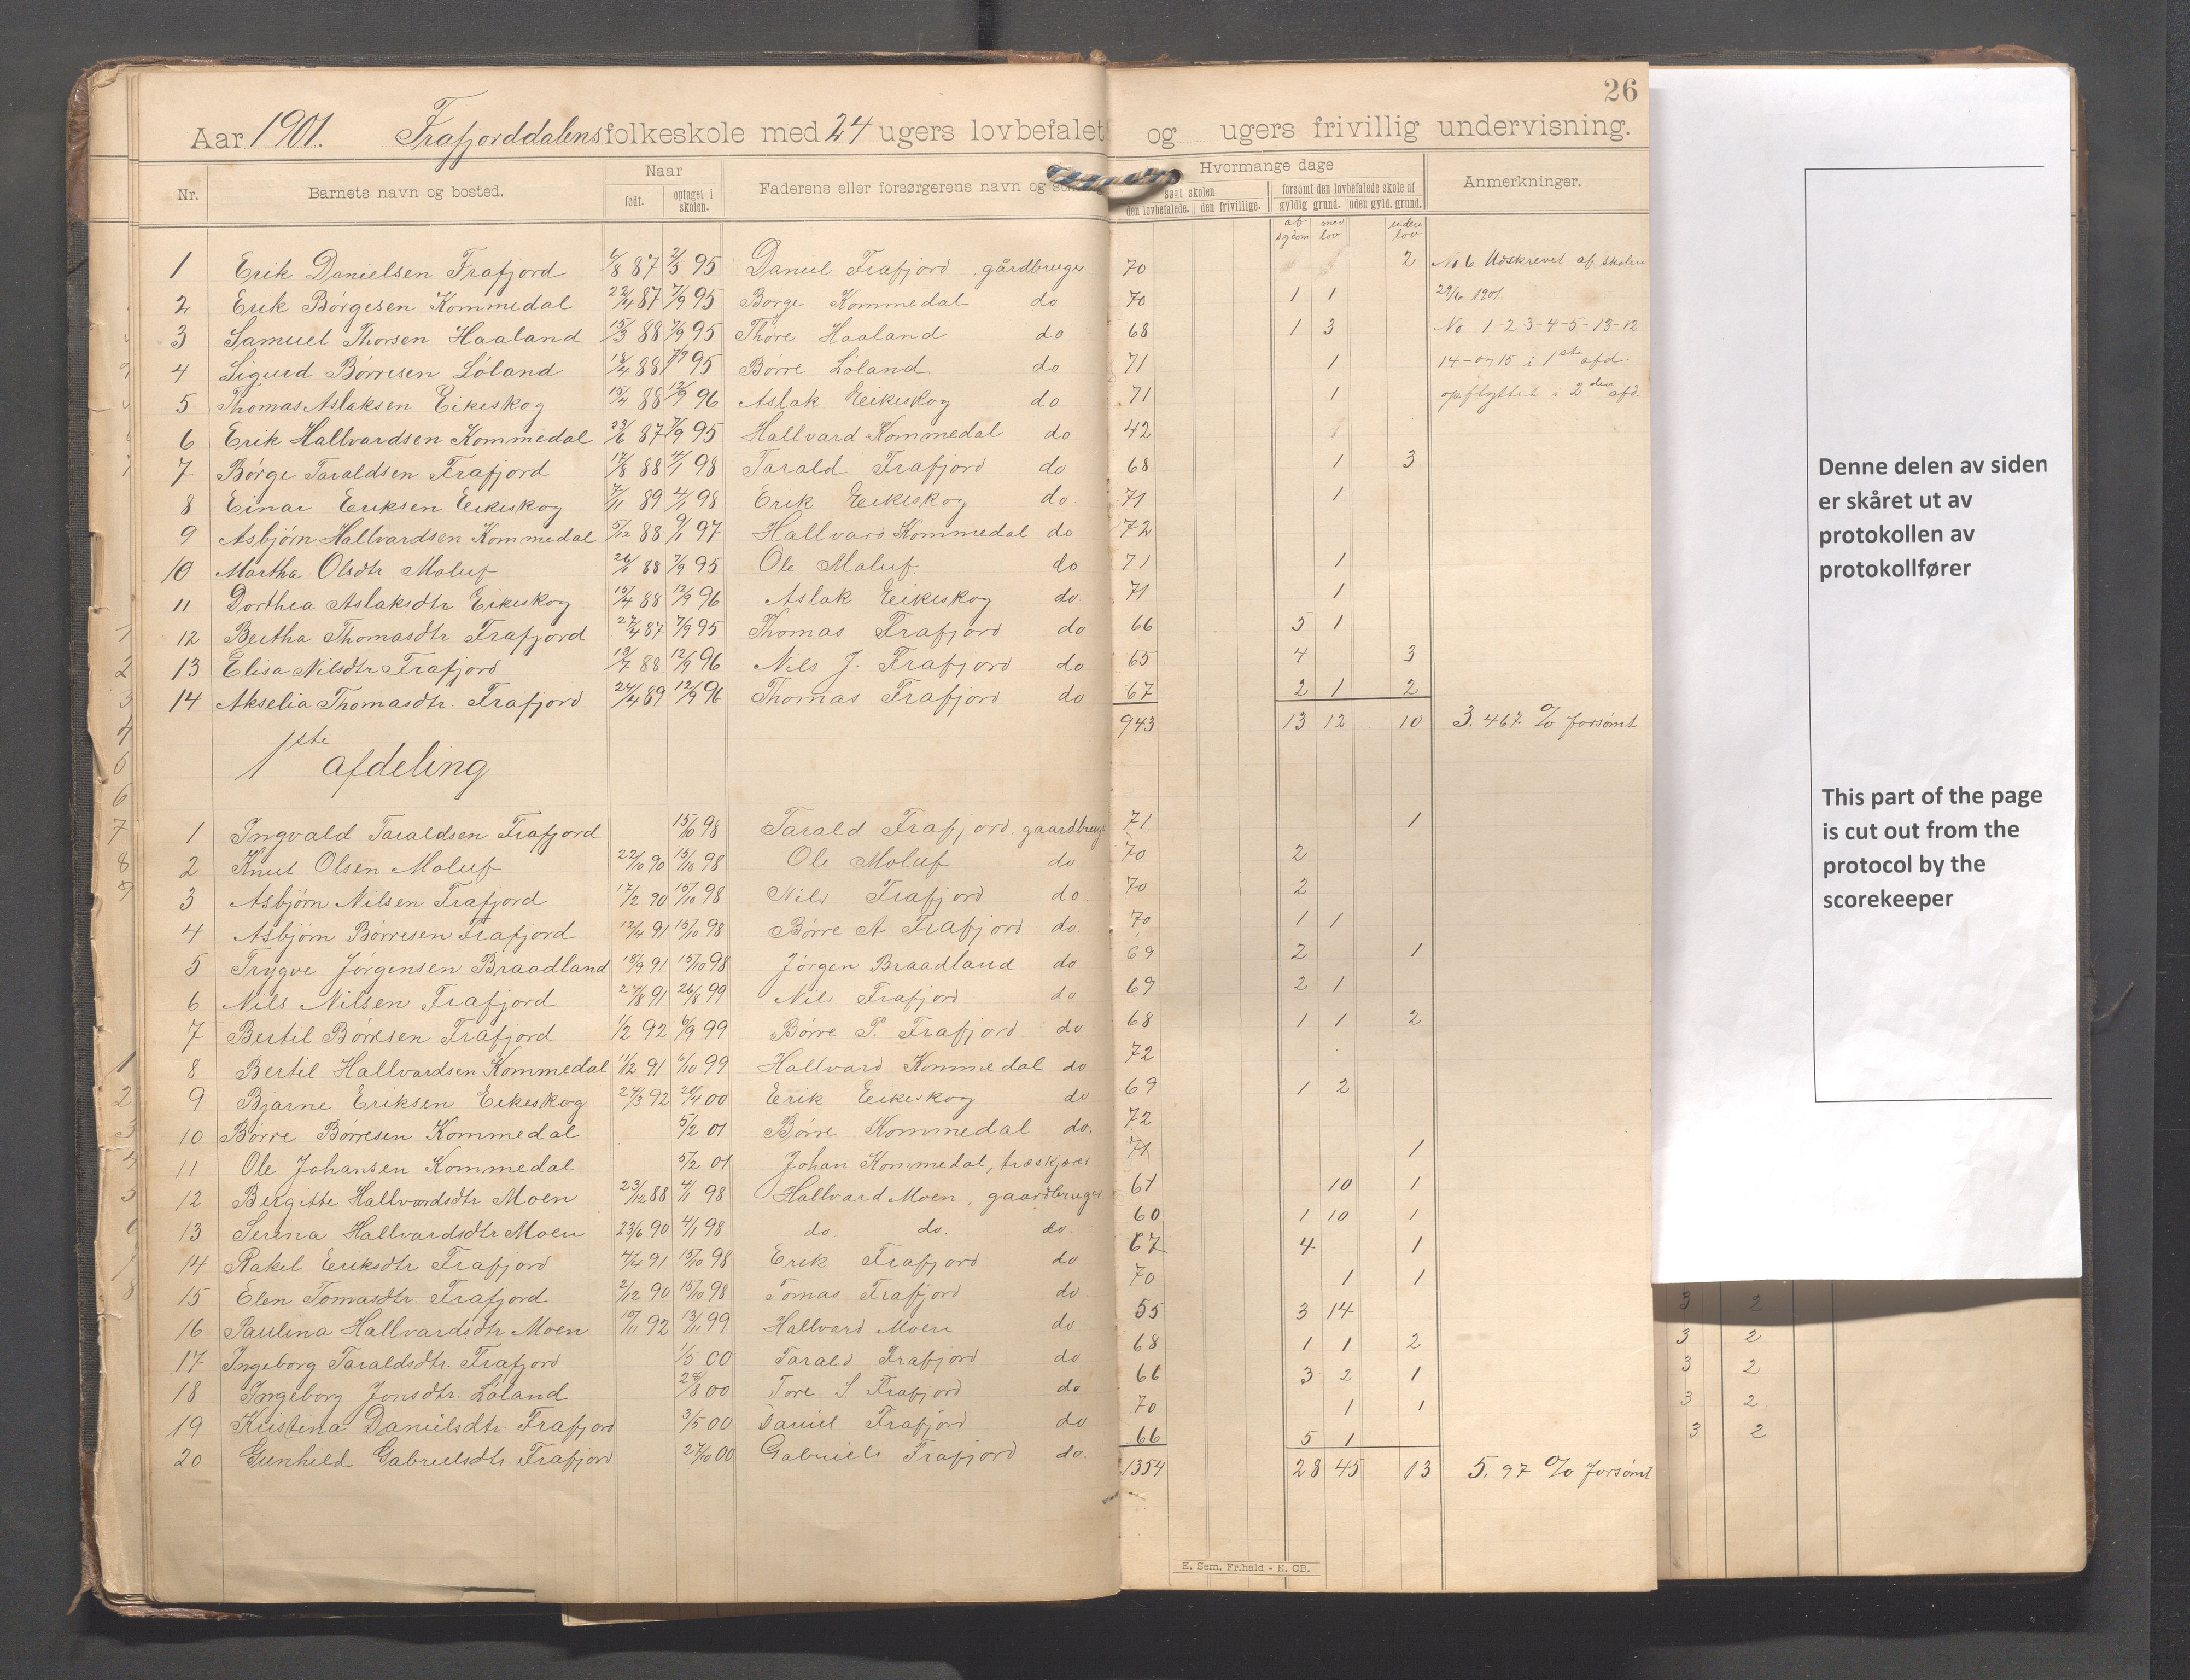 26
Aar 1901. Trafjorddalens folkeskole med 24 ugers lovbefalet og ugers frivillig undervisning.
Nr. Barnets navn og bosted. Naar født. optaget i skolen. Faderens eller forsørgerens navn og Hvormange dage søgt skolen den lovbefalede. den frivillige. forsømt den lovbefalede skole af gyldig grund. uden gyld. grund. Anmerkninger.
af sydom med lov uden lov
1 Erik Danielsen Frafjord 6/8 87 2/5 95 Daniel Frafjord gårdbruger 70 2 No 6 Udskrevet af skolen
2 Erik Børgesen Kommedal 22/4 87 7/9 95 Børge Kommedal do 70 1 1 29/6 1901
3 Samuel Thorsen Haaland 15/3 88 7/9 95 Thore Haaland do 68 1 3 No 1-2-3-4-5-13-12
4 Sigurd Børresen Løland 18/4 88 7/9 95 Børre Løland do 71 1 14- og 15 i 1ste afd.
5 Thomas Aslaksen Eikeskog 15/4 88 12/9 96 Aslak Eikeskog do 71 1 opflyttet i 2den afd.
6 Erik Hallvardsen Kommedal 23/6 87 7/9 95 Hallvard Kommedal do 42
7 Børge Taraldsen Frafjord 17/8 88 4/1 98 Tarald Frafjord do 68 1 3
8 Einar Eriksen Eikeskog 7/11 89 4/1 98 Erik Eikeskog do. 71 1
9 Asbjørn Hallvardsen Kommedal 5/12 88 9/1 97 Hallvard Kommedal do 72
10 Martha Olsdtr Moluf 26/1 88 7/9 95 Ole Moluf. do 71 1
11 Dorthea Aslaksdtr Eikeskog 15/4 88 12/9 96 Aslak Eikeskog do. 71 1
12 Bertha Thomasdtr Frafjord 27/4 87 7/9 95 Thomas Frafjord do 66 5 1
13 Elisa Nilsdtr Frafjord 13/7 88 12/9 96 Nils J. Frafjord do 65 4 3
14 Akselia Thomasdtr. Frafjord 24/4 89 12/9 96 Thomas Frafjord do 67 2 1 2
943 13 12 10 3.467 % forsømt
1ste afdeling
1 Ingvald Taraldsen Frafjord 15/10 98 Tarald Frafjord. gaardbruge 71 1
2 Knut Olsen Moluf 22/10 90 15/10 98 Ole Moluf do 70 2
3 Asbjørn Nilsen Frafjord 17/2 90 15/10 98 Nils Frafjord do. 70 2
4 Asbjørn Børresen Frafjord 12/4 91 15/10 98 Børre A Frafjord do 70 1 1
5 Trygve Jørgensen Braadland 18/9 91 15/10 98 Jørgen Braadland do 69 2 1
6 Nils Nilsen Frafjord 24/8 91 26/8 99 Nils Frafjord do 69 2 1
7 Bertil Børresen Frafjord 1/2 92 6/9 99 Børre P. Frafjord do 68 1 1 2
8 Bertil Hallvardsen Kommedal 11/12 91 6/10 99 Hallvard Kommedal do 72
9 Bjarne Eriksen Eikeskog 24/3 92 21/4 00 Erik Eikeskog do 69 1 2
10 Børre Børresen Kommedal 5/2 01 Børre Kommedal do. 72
11 Ole Johansen Kommedal 5/2 01 Johan Kommedal, træskjærer 71 1
12 Bergitte Hallvardsdtr Moen 23/12 88 4/1 98 Hallvard Moen, gaardbruger 61 10 1
13 Serina Hallvardsdtr Moen 23/6 90 4/1 98 do. do. do. 60 1 10 1
14 Rakel Eriksdtr Frafjord 4/4 91 15/10 98 Erik Frafjord do 67 4 1
15 Elen Tomasdtr. Frafjord 2/12 90 15/10 98 Tomas Frafjord do. 70 1 1
16 Paulina Hallvardsdtr Moen 10/11 92 13/11 99 Hallvard Moen do 55 3 14
17 Ingeborg Taraldsdtr. Frafjord 1/5 00 Tarald Frafjord do 68 1 1 2
18 Ingeborg Jonsdtr. Løland 28/8 00 Tore S. Frafjord do 66 3 2 1
19 Kristina Danielsdtr. Frafjord 3/5 00 Daniel Frafjord do 70 1 1
20 Gunhild Gabrielsdtr Frafjord 27/10 00 Gabriels Frafjord do. 66 5 1
1354 28 45 13 5.97 % forsømt
E. Sem, Fr.hald - E. CB.
Denne delen av siden
er skåret ut av
protokollen av
protokollfører
This part of the page
is cut out from the
protocol by the
scorekeeper
3 2
3 2
3 2
3 2
3 2